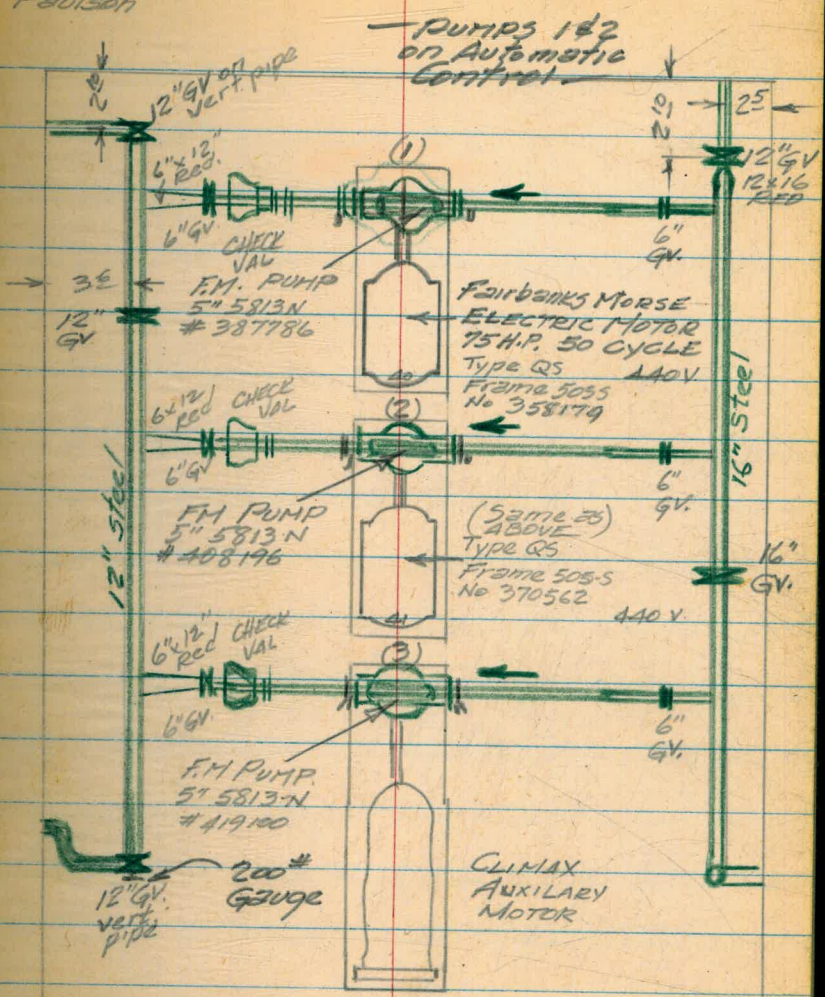 Paulson
— Pumps 1 & 2
on Automatic
Control —
12" GV on
vert pipe
2⁵
12" GV
12x16
RED
(1)
6"x12"
Red.
6" GV.
CHECK
VAL
6"
GV.
3⁶
12"
GV
F.M. PUMP
5" 5813N
# 387786
Fairbanks Morse
ELECTRIC MOTOR
75 H.P. 50 CYCLE
Type QS 440V
Frame 505S
No 358179
40
16" Steel
(2)
6x12
Red
CHECK
VAL
6" GV
6"
GV.
12" Steel
FM PUMP
5" 5813-N
# 408196
(Same as)
ABOVE
Type QS
Frame 505-S
No 370562
440 V.
41
16"
GV.
(3)
6"x12"
Red
CHECK
VAL
6" GV.
6"
GV.
F.M PUMP.
5" 5813-N
# 419100
200#
Gauge
12" GV.
vert.
pipe
CLIMAX
AUXILARY
MOTOR